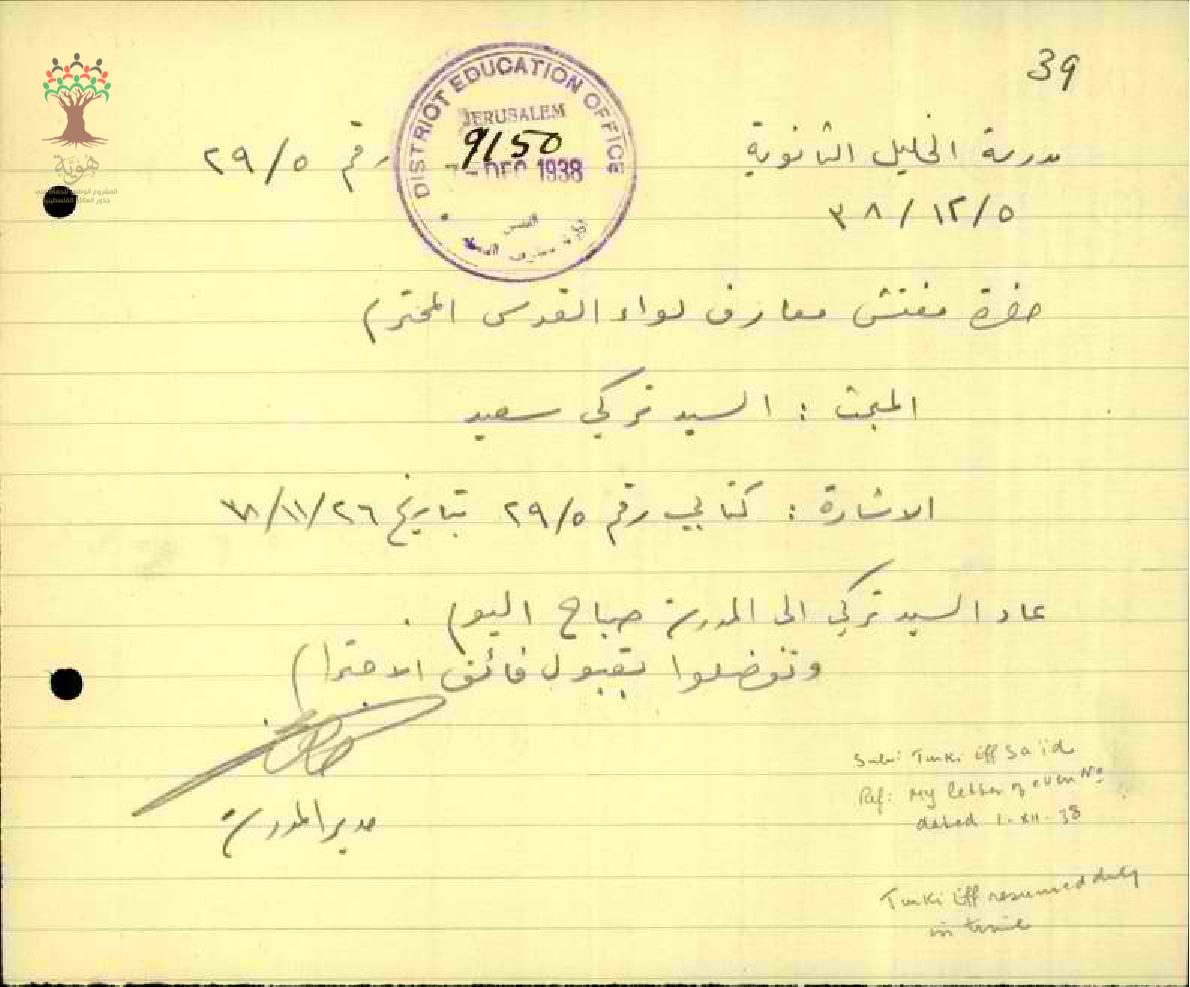 39
مدرسة الخليل الثانوية
رقم ٢٩/٥
٣٨/١٢/٥
DISTRICT EDUCATION OFFICE
JERUSALEM
9150
7 - DEC 1938
القدس
حضرة مفتش معارف لواء القدس المحترم
المبحث : السيد تركي سعيد
الاشارة : كتابي رقم ٢٩/٥ بتاريخ ٣٨/١١/٢٦
عاد السيد تركي الى المدرسة صباح اليوم .
وتفضلوا بقبول فائق الاحترام
مدير المدرسة
Sub: Turki Eff Sa'id
Ref: My letter of even No
dated 1-XII-38
Turki Eff resumed duty
in time
هوية
المشروع الوطني للحفاظ على
جذور العائلة الفلسطينية